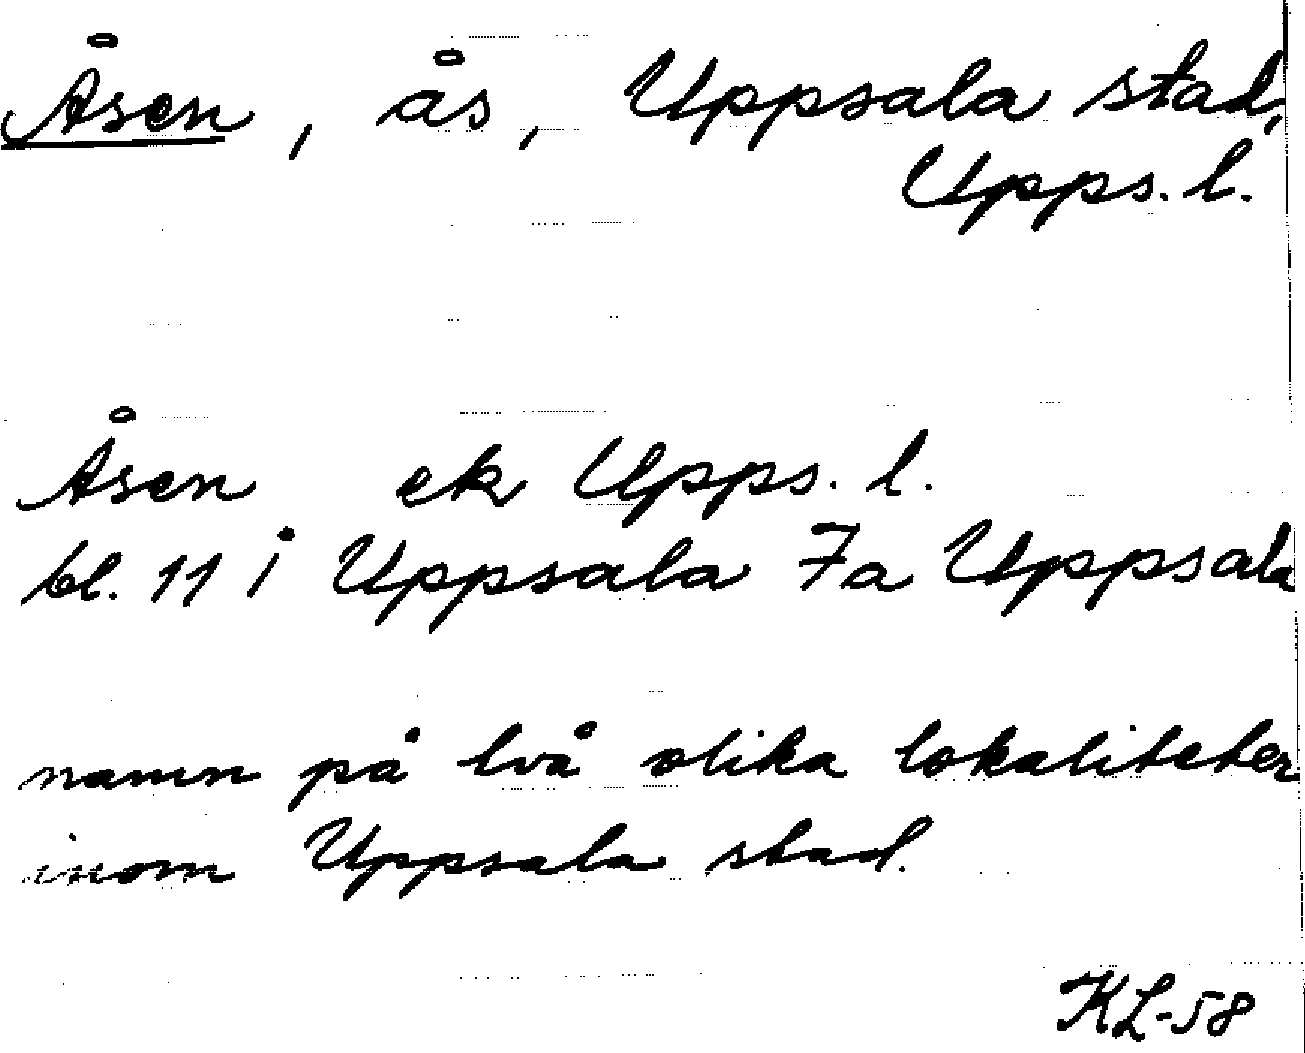 Åsen, ås, Uppsala stad,
Upps. l.
Åsen ek Upps. l.
bl. 11 i Uppsala 7a Uppsala
namn på två olika lokaliteter
inom Uppsala stad.
KL-58